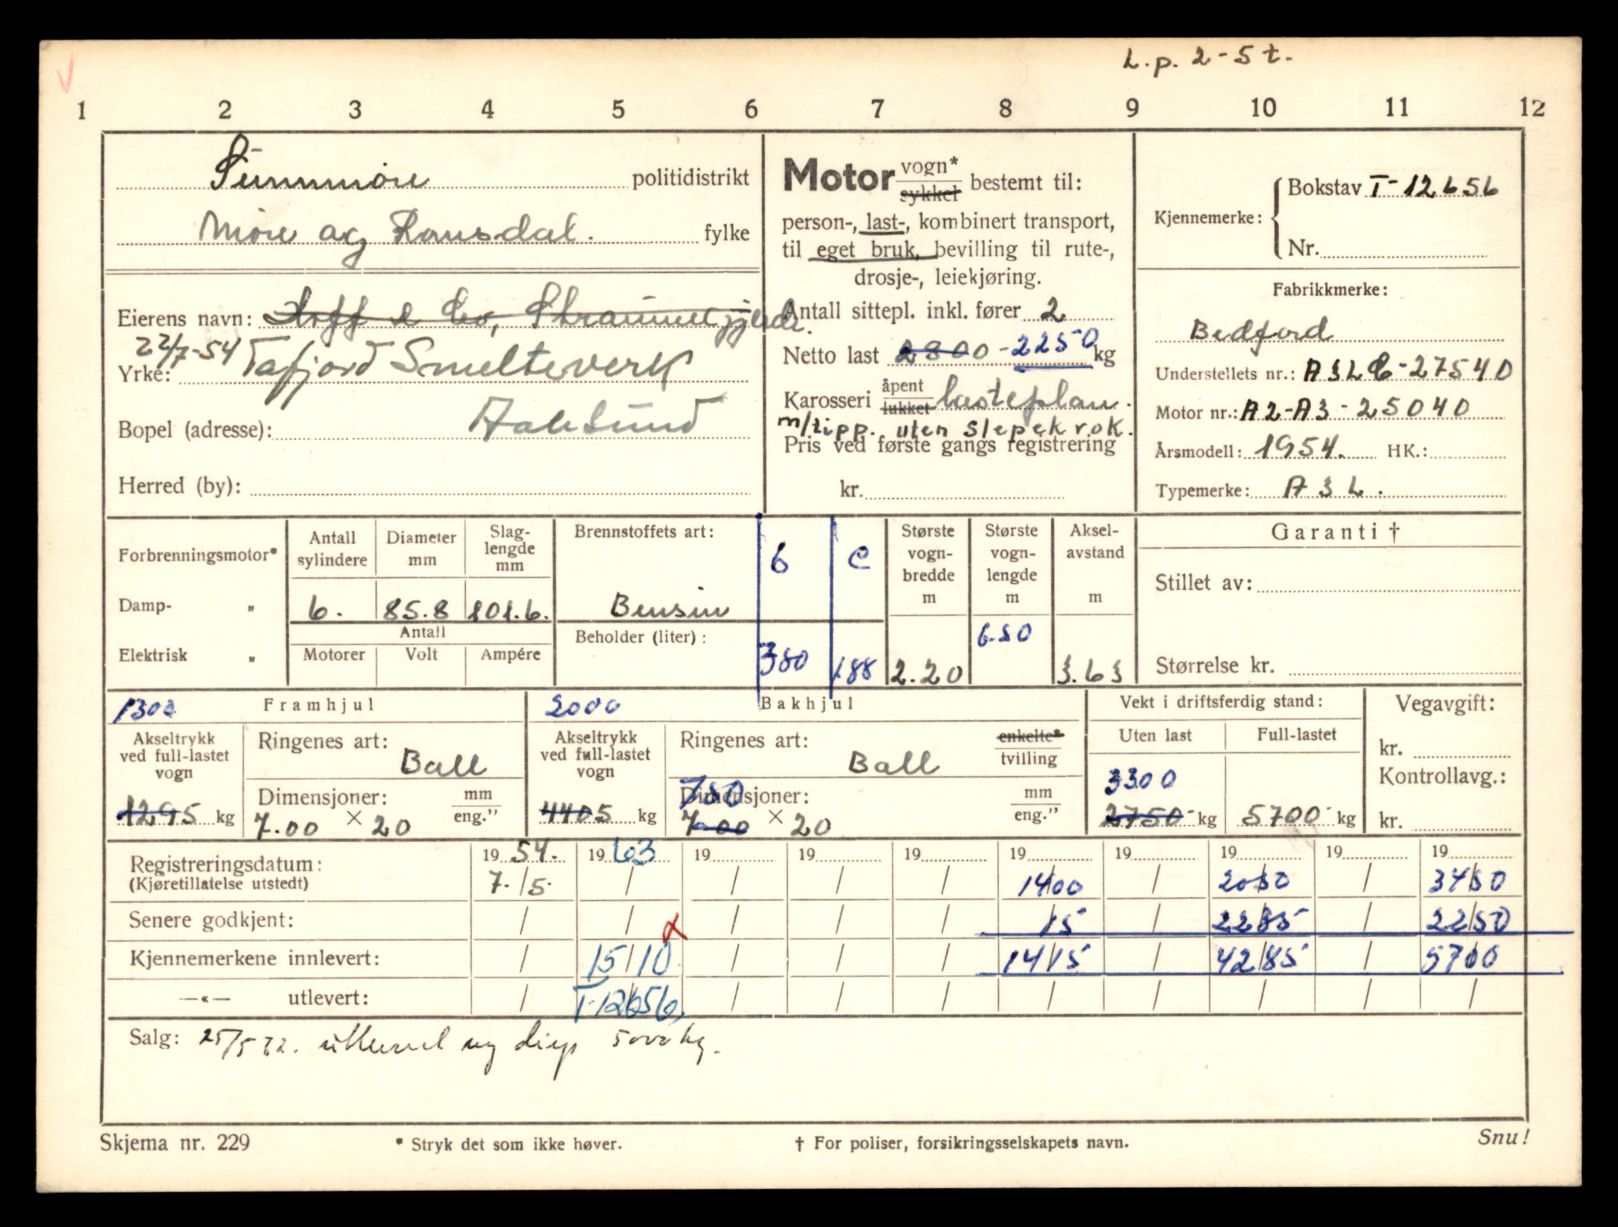 L.p. 2-5 t.
1 2 3 4 5 6 7 8 9 10 11 12
Sunnmøre politidistrikt
Møre og Romsdal. fylke
Eierens navn: Hoff & Co,
22/7-54 Tafjord Smelteverk
Yrke:
Bopel (adresse): Aalesund
Herred (by):
Motor vogn* sykkel bestemt til:
person-, last-, kombinert transport,
til eget bruk, bevilling til rute-,
drosje-, leiekjøring.
Antall sittepl. inkl. fører 2
Netto last 2800 - 2250 kg
Karosseri åpent lukket lasteplan.
m/tipp. uten slepekrok.
Pris ved første gangs registrering
kr.
Kjennemerke: Bokstav T-12656
Nr.
Fabrikkmerke:
Bedford
Understellets nr.: A3LC-27540
Motor nr.: A2-A3-25040
Årsmodell: 1954. HK.:
Typemerke: A3L.
Forbrenningsmotor*
Damp- „
Elektrisk „
Antall sylindere 6.
Diameter mm 85.8
Slaglengde mm 101.6.
Antall
Motorer Volt Ampére
Brennstoffets art:
Bensin
Beholder (liter):
b C
380 188
Største vognbredde m 2.20
Største vognlengde m 6.50
Akselavstand m 3.63
Garanti †
Stillet av:
Størrelse kr.
1300 Framhjul
Akseltrykk ved full-lastet vogn
1295 kg
Ringenes art: Ball
Dimensjoner: mm eng."
7.00 × 20
2000 Bakhjul
Akseltrykk ved full-lastet vogn
4405 kg
Ringenes art: Ball enkelte* tvilling
Dimensjoner: mm eng."
750
7.00 × 20
Vekt i driftsferdig stand:
Uten last Full-lastet
3300
2750 kg 5700 kg
Vegavgift:
kr.
Kontrollavg.:
kr.
19 54. 19 63 19 19 19 19 19 19 19 19
Registreringsdatum: 7. / 5. 1400 2050 3450
(Kjøretillatelse utstedt)
Senere godkjent: 15 2285 2250
Kjennemerkene innlevert: 15/10 x 1415 4285 5700
—«— utlevert: T-12656
Salg: 25/5 72. 5000 kg.
Skjema nr. 229
* Stryk det som ikke høver.
† For poliser, forsikringsselskapets navn.
Snu!